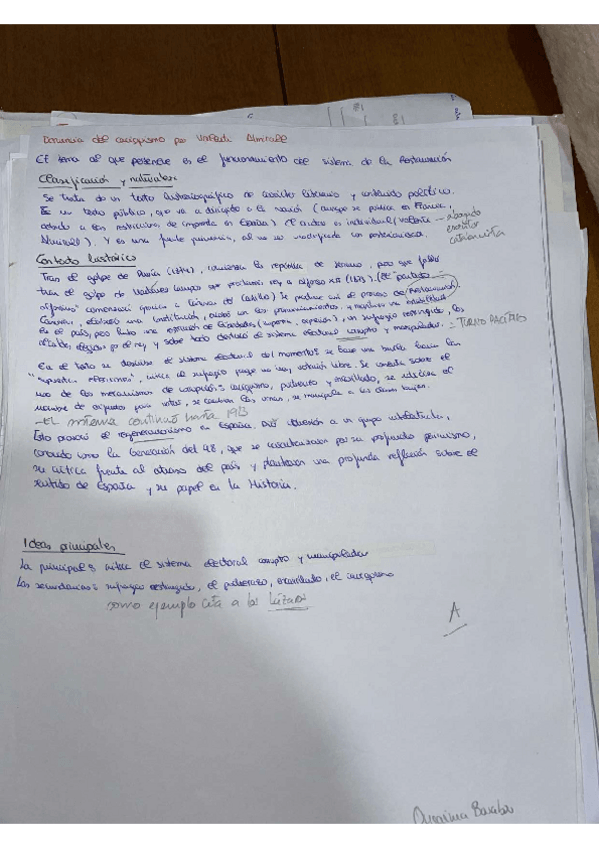 Denuncia del caciquismo por Valentí Almirall
El tema al que pertenece es el funcionamiento del sistema de la Restauración
Clasificación y naturaleza
Se trata de un texto historiográfico de carácter literario y contenido político.
Es un texto público, que va a dirigido a la nación (aunque se publica en Francia,
debido a las restricciones de imprenta en España). El autor es individual (Valentí - abogado
escritor
catalanista
Almirall). Y es una fuente primaria, al no ser modificada con posterioridad.
Contexto histórico
Tras el golpe de Pavía (1874), comienza la república de Serrano, pero que falló
tras el golpe de Martínez Campos que proclamó rey a Alfonso XII (1875). (El partido
alfonsino comenzará apoyar a Cánovas del Castillo) Se produce así el proceso de Restauración.
Cánovas, elaboró una Constitución, acabó con los pronunciamientos y mantuvo una estabilidad
en el país, pero hubo una restricción de libertades (imprenta, expresión), un sufragio restringido, los
alcaldes, elegidos por el rey, y sobre todo destacó el sistema electoral corrupto y manipulador. = TURNO PACÍFICO
En el texto se describe el sistema electoral del momento: se hace una burla hacia las
"supuestas elecciones", critica al sufragio porque no hay votación libre. Se comenta sobre el
uso de los mecanismos de corrupción: caciquismo, pucherazo y encasillado, se
nombre de difuntos para votar, se cambian las urnas, se manipula a las clases bajas.
- El sistema continuó hasta 1923
Esto provocó el regeneracionismo en España. Dio a un grupo intelectual,
conocido como la Generación del 98, que se caracterizaron por su profundo pesimismo,
su crítica frente al atraso del país y plantearon una profunda reflexión sobre el
sentido de España y su papel en la Historia.
Ideas principales
La principal: critica el sistema electoral corrupto y manipulador
Las secundarias: sufragio restringido, el pucherazo, encasillado, el caciquismo
como ejemplo cita a los Lázaros
A